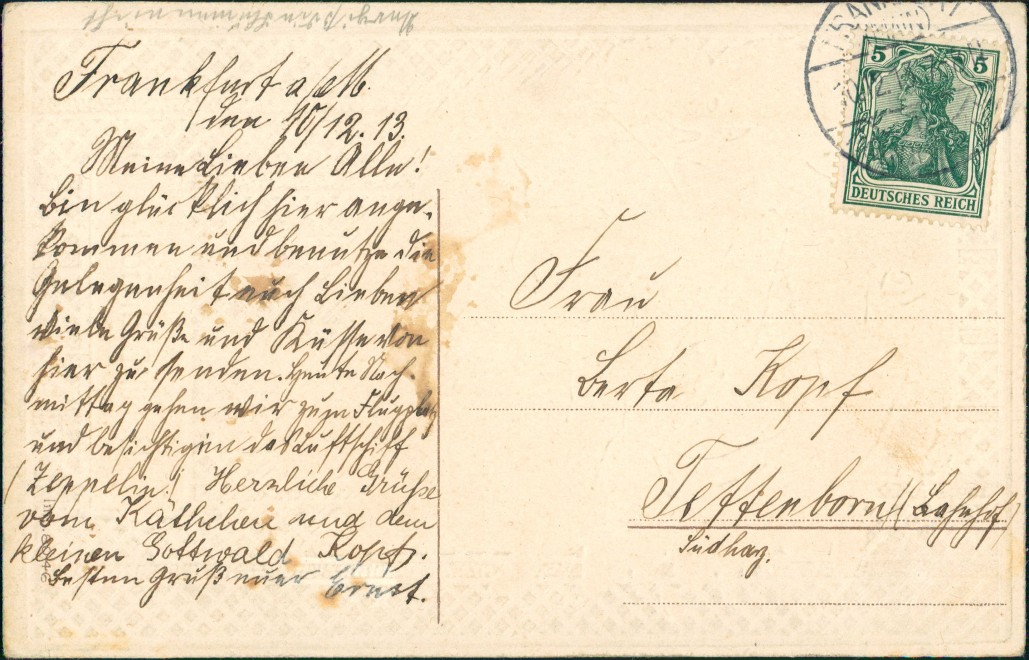 Frankfurt a/M.
den 10/12.13.
Meine Lieben Alle!
Bin glücklich hier ange-
kommen und benutze die
Gelegenheit euch Lieben
viele Grüße und Küsse von
hier zu senden. Heute Nach-
mittag gehen wir zum Flugplatz
und besichtigen das Luftschiff
(Zeppelin.) Herzliche Grüße
vom Käthchen und dem
kleinen Gottwald Kopf.
Besten Gruß euer Ernst.
DEUTSCHES REICH
5 5
Frau
Berta Kopf
Tettenborn (Bahnhof)
Südharz.